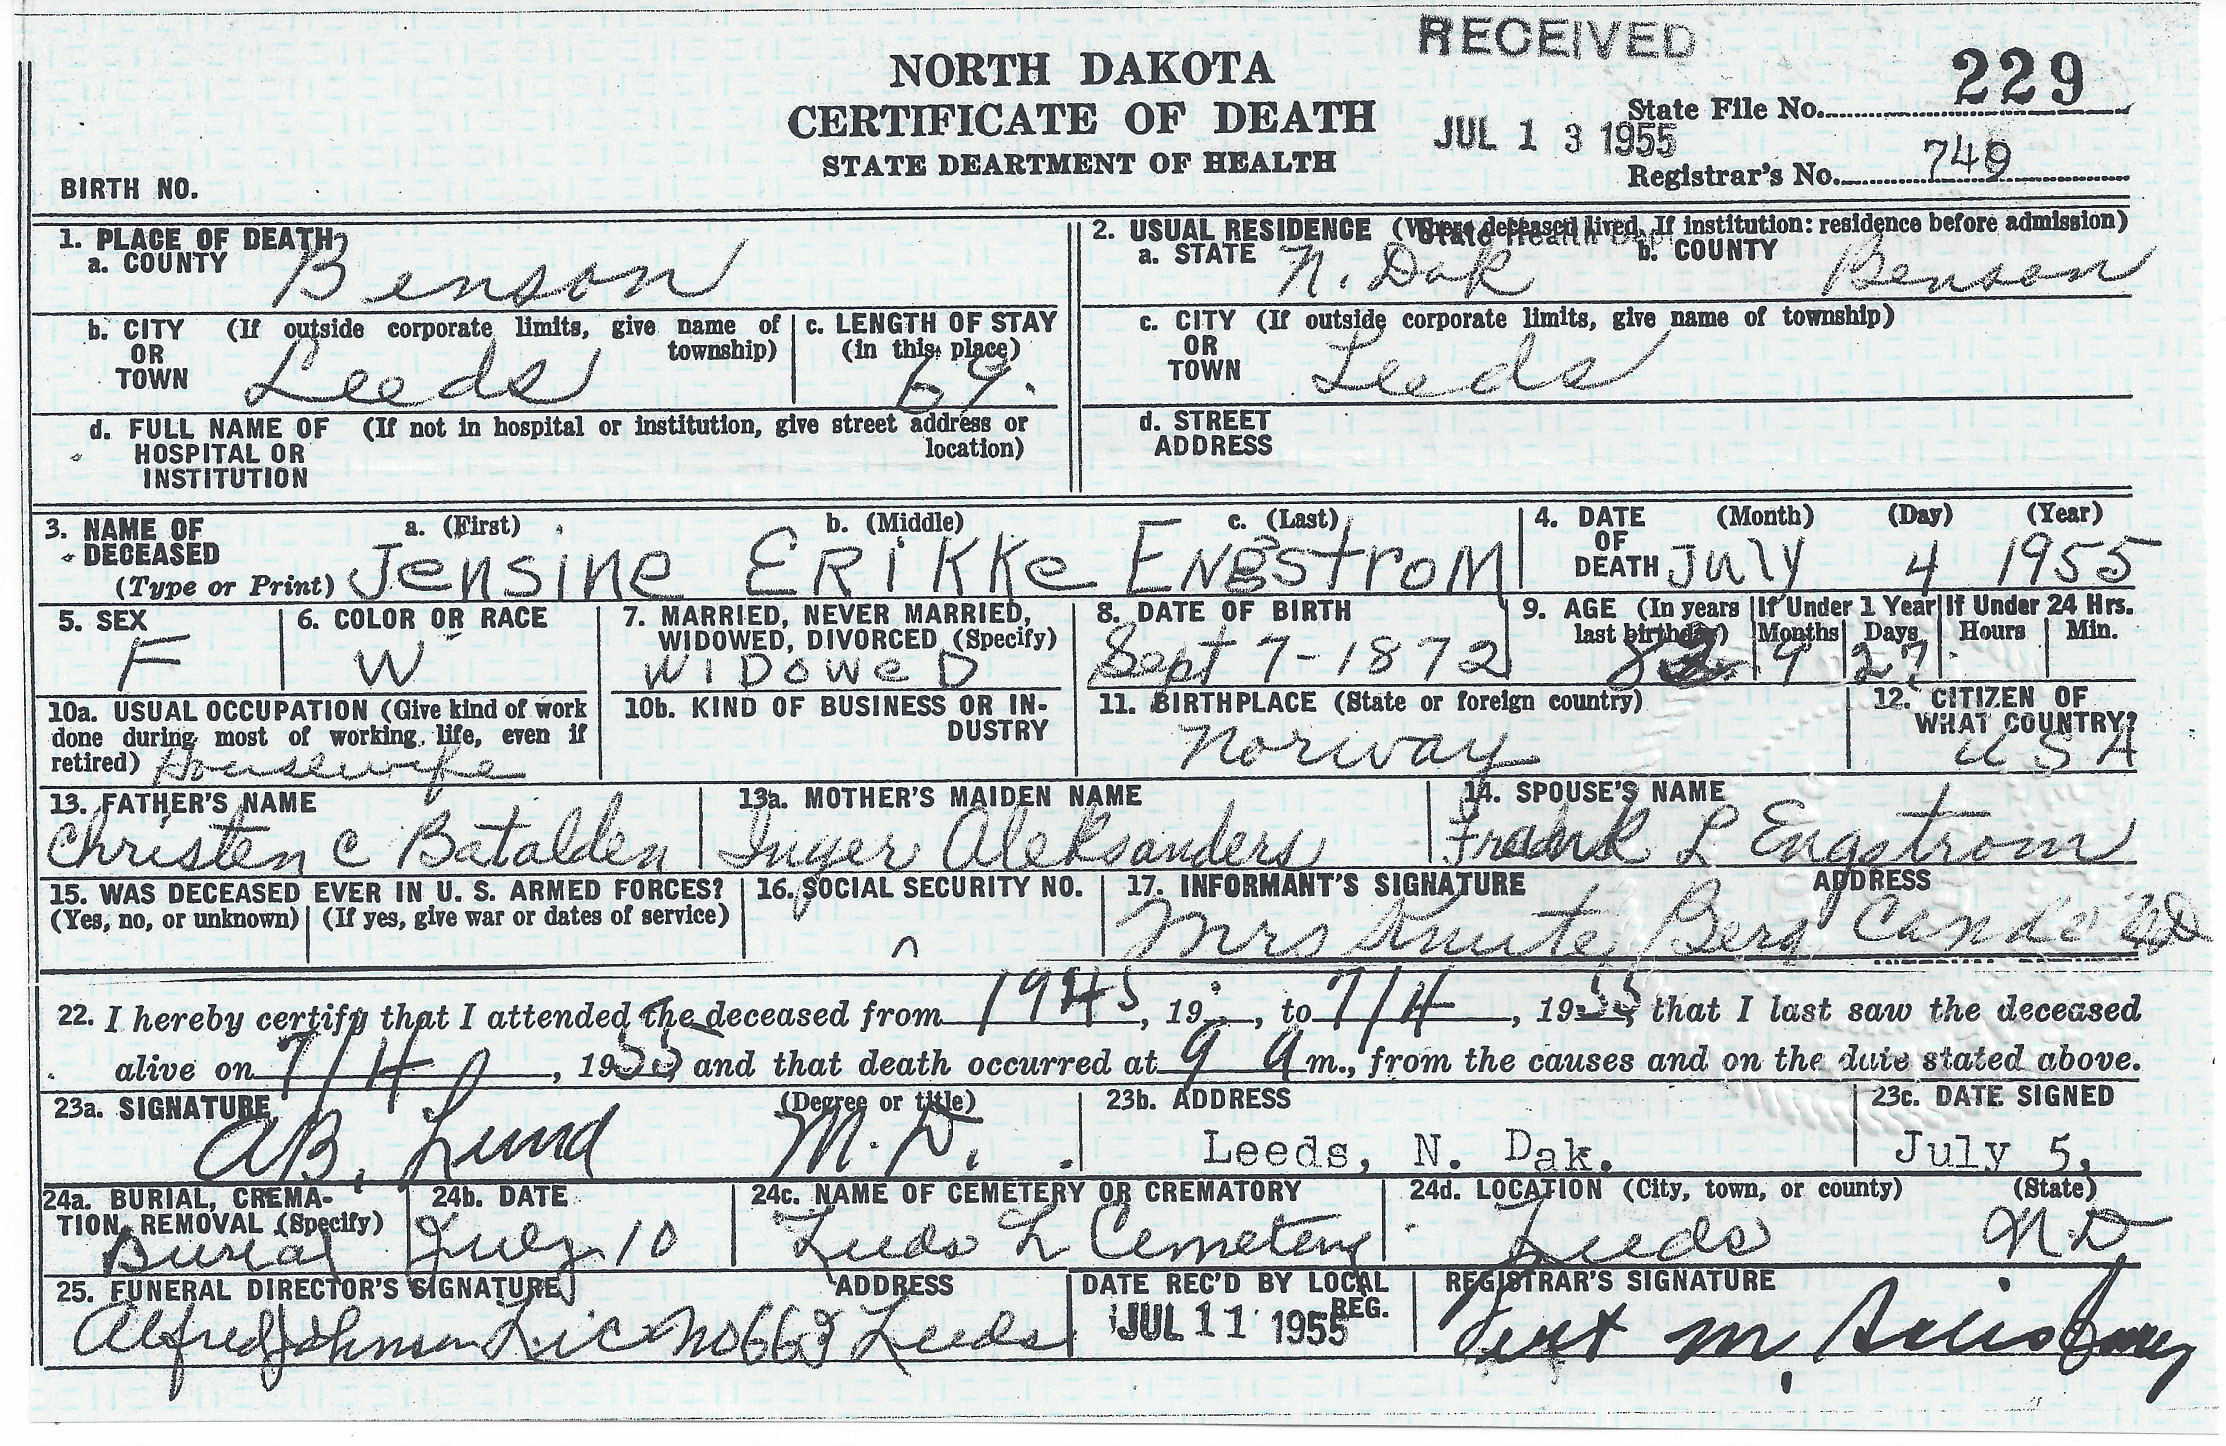 RECEIVED
NORTH DAKOTA
CERTIFICATE OF DEATH
STATE DEARTMENT OF HEALTH
State File No. 229
JUL 13 1955
Registrar's No. 749
BIRTH NO.
1. PLACE OF DEATH
a. COUNTY Benson
2. USUAL RESIDENCE (Where deceased lived. If institution: residence before admission)
State Health Dept
a. STATE N. Dak b. COUNTY Benson
b. CITY OR TOWN (If outside corporate limits, give name of township) Leeds
c. LENGTH OF STAY (in this place)
c. CITY OR TOWN (If outside corporate limits, give name of township) Leeds
d. FULL NAME OF HOSPITAL OR INSTITUTION (If not in hospital or institution, give street address or location)
d. STREET ADDRESS
3. NAME OF DECEASED (Type or Print)
a. (First) b. (Middle) c. (Last)
Jensine ERIKKe ENgstroM
4. DATE OF DEATH (Month) (Day) (Year)
July 4 1955
5. SEX F
6. COLOR OR RACE W
7. MARRIED, NEVER MARRIED, WIDOWED, DIVORCED (Specify)
WIDOWeD
8. DATE OF BIRTH
Sept 7-1872
9. AGE (In years last birthday) 82 If Under 1 Year Months 9 Days 27 If Under 24 Hrs. Hours Min.
10a. USUAL OCCUPATION (Give kind of work done during most of working life, even if retired) Housewife
10b. KIND OF BUSINESS OR INDUSTRY
11. BIRTHPLACE (State or foreign country)
Norway
12. CITIZEN OF WHAT COUNTRY?
USA
13. FATHER'S NAME
Christen C Batalden
13a. MOTHER'S MAIDEN NAME
Inger Aleksanders
14. SPOUSE'S NAME
Frank L Engstrom
15. WAS DECEASED EVER IN U. S. ARMED FORCES?
(Yes, no, or unknown) (If yes, give war or dates of service)
16. SOCIAL SECURITY NO.
17. INFORMANT'S SIGNATURE ADDRESS
Mrs Knute Berg Cando ND
22. I hereby certify that I attended the deceased from 1945, 19 , to 7/4, 1955, that I last saw the deceased
alive on 7/4, 1955, and that death occurred at 9 a m., from the causes and on the date stated above.
23a. SIGNATURE (Degree or title)
AB. Lund M.D.
23b. ADDRESS
Leeds, N. Dak.
23c. DATE SIGNED
July 5,
24a. BURIAL, CREMATION, REMOVAL (Specify)
Burial
24b. DATE
July 10
24c. NAME OF CEMETERY OR CREMATORY
Leeds L Cemetery
24d. LOCATION (City, town, or county) (State)
Leeds N.D.
25. FUNERAL DIRECTOR'S SIGNATURE ADDRESS
Alfred Johnson Lic No Leeds
DATE REC'D BY LOCAL REG.
JUL 11 1955
REGISTRAR'S SIGNATURE
M.